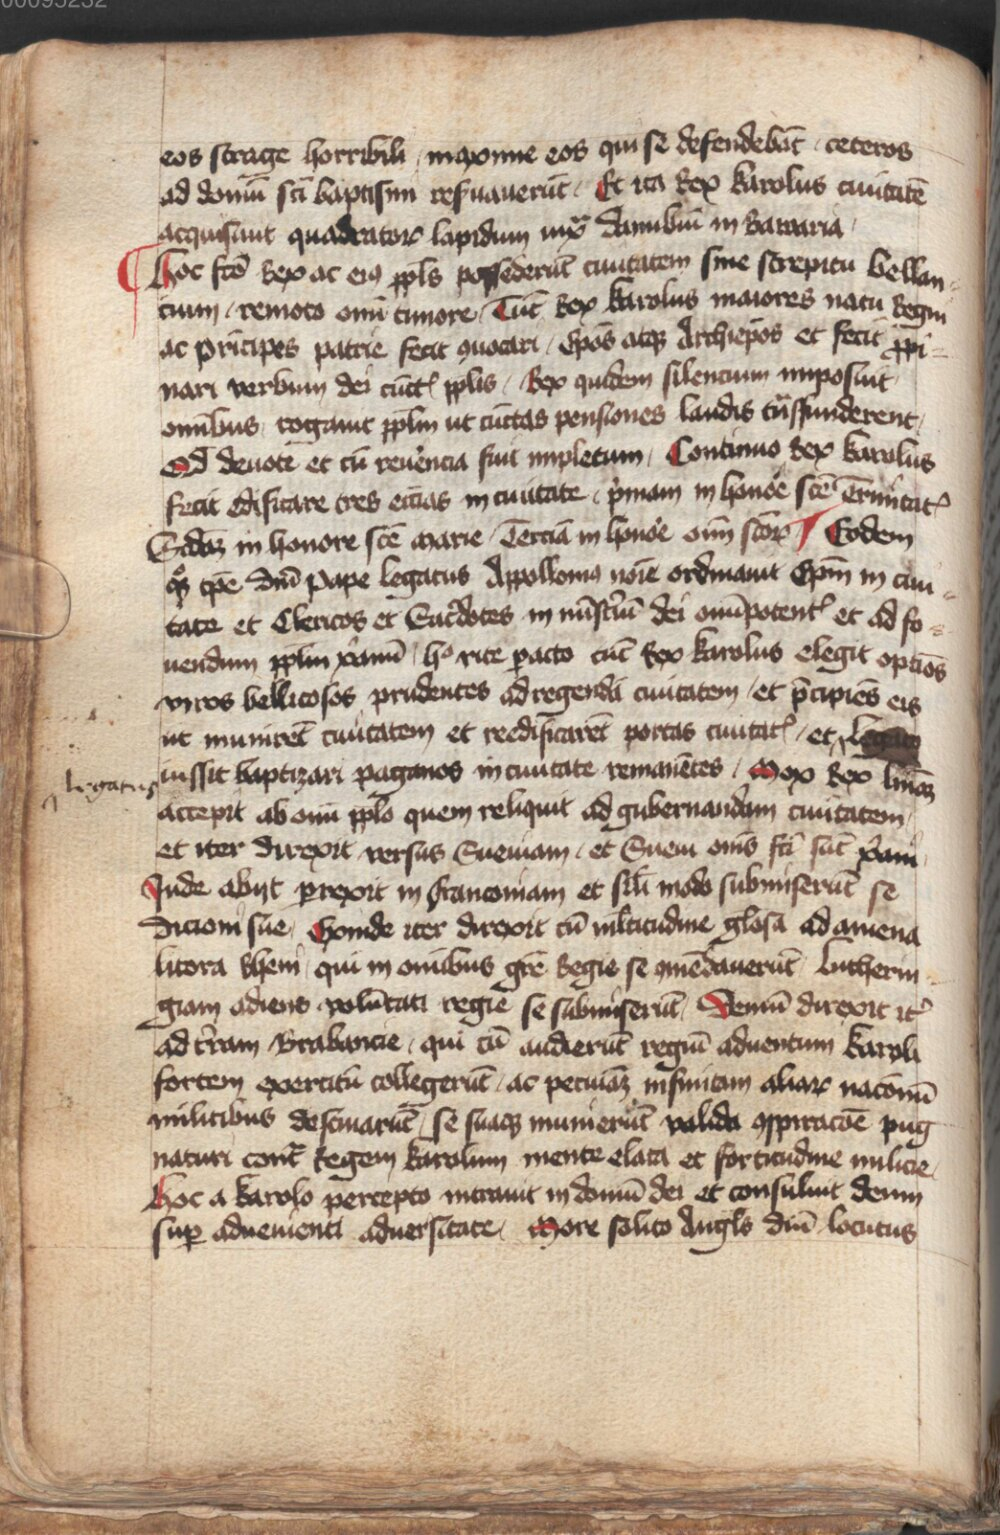 00095232
eos strage horribili, maxime eos qui se defendebāt, ceteros
ad domū scī baptismi res̄uauerūt. Et ita Rex Karolus ciuitatē
acquisiuit quadratoꝝ lapidum iuxᵃ Danubiū in Bavaria,
Hoc fcō Rex ac eiꝰ ppls̄ possederūt ciuitatem sine strepitu bellan=
tium, remoto omī timore, Tūc Rex Karolus maiores natu Regni
ac principes patrie fecit ꝯuocari, Ep̄os atqꝫ Archiep̄os et fecit p̄pi=
nari verbum dei cūctꝭ ppl̄is, Rex quidem silencium imposuit
omībus, rogauit ppl̄m ut cūctas pensiones laudis tᵃnsfunderent,
Qd̄ deuote et cū reuerēncia fuit impletum, Continuo Rex Karolus
fecit edificare tres ecc̄ias in ciuitate, p̄mam in honoē scē Trinitatꝭ
Scd̄aꝫ in honore scē Marie, Terciā in honoē oīm sc̄oꝝ Eodem
qᵒqꝫ tp̄e dn̄i Pape legatus Appolloniꝰ noīe ordinauit Ep̄m in ciui=
tate et Clericos et Sac̄dotes in mīst̄iū dei omīpotentꝭ et ad fo=
uendum ppl̄m xp̄ianū, hᵒ rite ꝑacto tūc Rex Karolus elegit optīos
viros bellicosos, prudentes ad regendā ciuitatem, et p̄cipiēs eis
ut munirēt ciuitatem et reedificarēt portas ciuitatꝭ, et
legatus
iussit baptizari paganos in ciuitate remanētes, Mox Rex licn̄ciaꝫ
accepit ab omī ppl̄o quem reliquit ad gubernandam ciuitatem,
et iter direxit versus Sueuiam, et Sueui om̄s fc̄i sūt xp̄iani
Inde abijt ꝑrexit in franconiam et sil̄i modo submiserūt se
dicioni sue, Exinde iter direxit cū ml̄titudine gl̄osa ad amena
litora Rheni, qui in omibus grē Regie se ꝯmēdauerūt Lutherin=
giam adiens volūtati regie se submiserūt, Demū direxit itꝭ
ad t̄ram Brabancie, qui cū audierūt regiū aduentum Karoli
fortem exercitū collegerūt, ac pecuniaꝫ infinitam aliaꝝ nacōnū
militibus destinarūt, se suaqꝫ munierūt valida ꝯspiracōe pug
naturi contᵃ Regem Karolum mente elata et fortitudine milicie.
Hoc a Karolo percepto intrauit in domū dei et consuluit deum
suꝑ aduenienti aduersitate, More solito Angl̄s dn̄i locutus